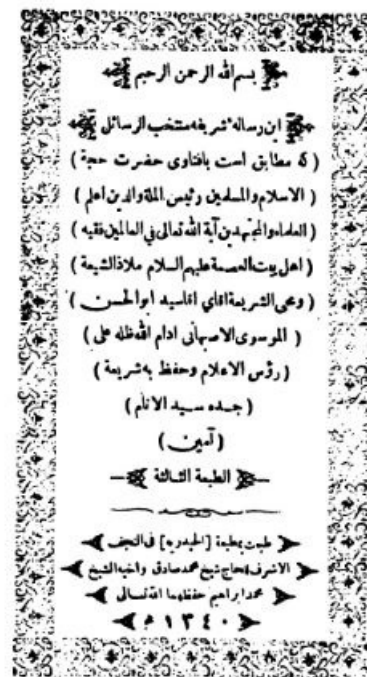 بسم الله الرحمن الرحيم
این رساله شریفه منتخب الرسائل
( که مطابق است بافتاوی حضرت حجة )
( الاسلام والمسلمین رئیس الملة والدین اعلم )
( العلماء والمجتهدین آیة الله تعالی فی العالمین فقیه )
( اهل بیت العصمة علیهم السلام ملاذ الشیعة )
( ومحی الشریعة اقای اقاسید ابوالحسن )
( الموسوی الاصبهانی ادام الله ظله علی )
( رؤس الاعلام وحفظ به شریعة )
( جده سید الانام )
( آمین )
الطبعة الثالثة
طبعت بمطبعة [ الحیدریه ] فی النجف
الاشرف حاج شیخ محمد صادق واخیه الشیخ
محمد ابراهیم حفظهما الله تعالی
١٣٤٠ ه